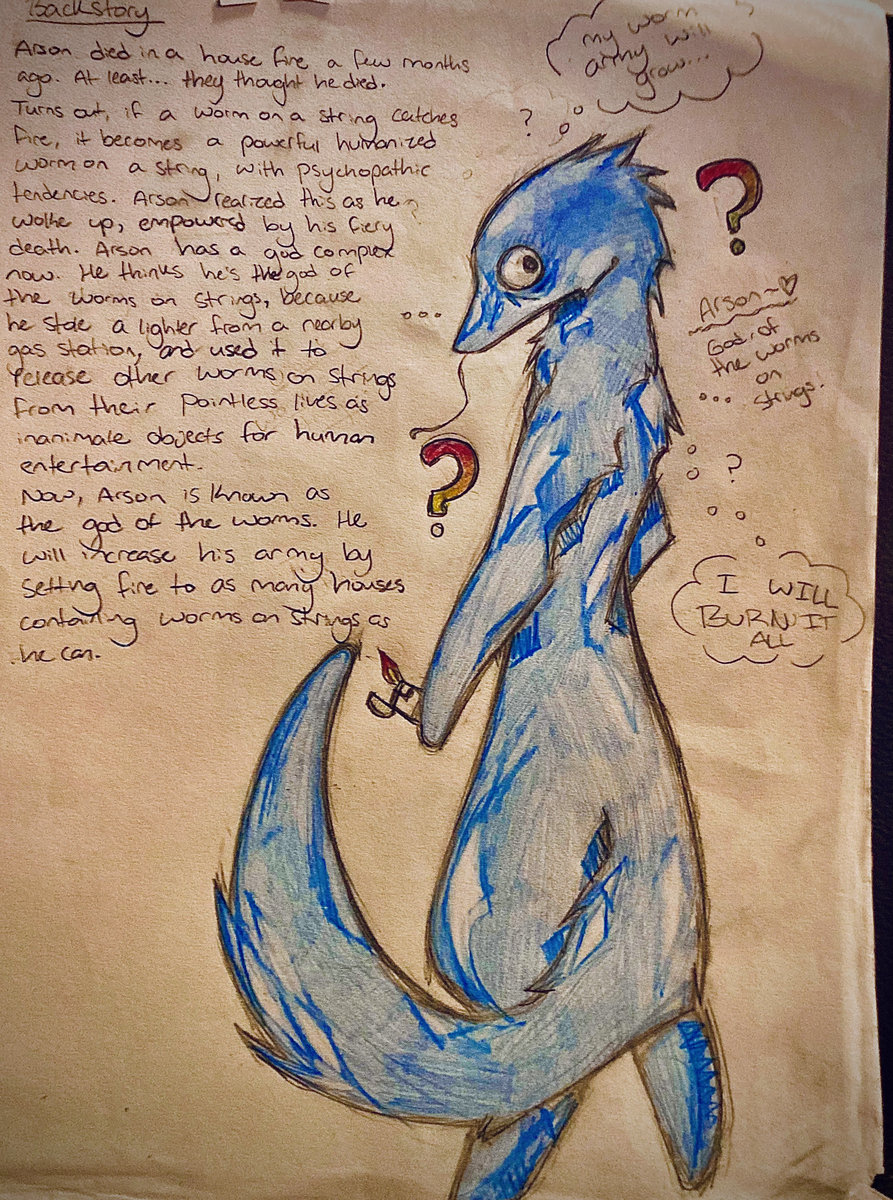 Backstory
Arson died in a house fire a few months
ago. At least... they thought he died.
Turns out, if a worm on a string catches
fire, it becomes a powerful humanized
worm on a string, with psychopathic
tendencies. Arson realized this as he
woke up, empowered by his fiery
death. Arson has a god complex
now. He thinks he's the god of
the worms on strings, because
he stole a lighter from a nearby
gas station, and used it to
release other worms on strings
from their pointless lives as
inanimate objects for human
entertainment.
Now, Arson is known as
the god of the worms. He
will increase his army by
setting fire to as many houses
containing worms on strings as
he can.
my worm
army will
grow...
?
?
?
...
Arson~♡
God of
the worms
on
strings!
...
?
?
I WILL
BURN IT
ALL